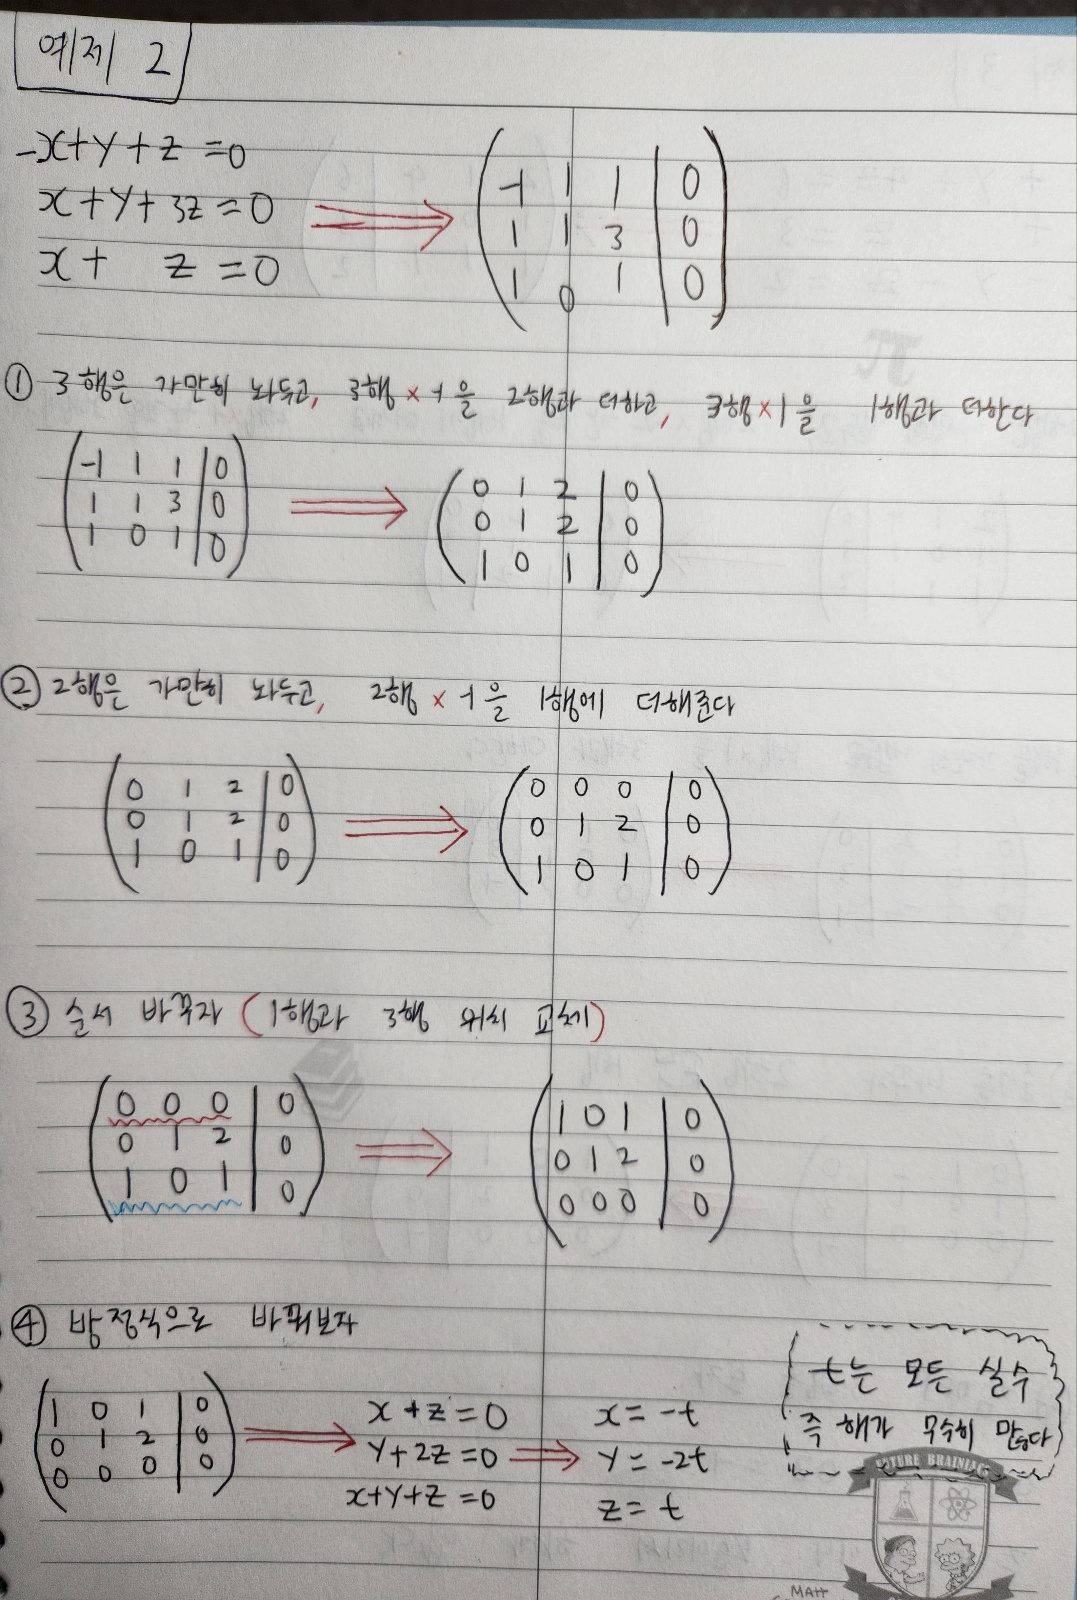 예제 2
-x+y+z=0
x+y+3z=0
x+ z=0
-1 1 1 | 0
1 1 3 | 0
1 0 1 | 0
① 3행은 가만히 놔두고, 3행 × -1을 2행과 더하고, 3행×1을 1행과 더한다
-1 1 1 | 0
1 1 3 | 0
1 0 1 | 0
0 1 2 | 0
0 1 2 | 0
1 0 1 | 0
② 2행은 가만히 놔두고, 2행 × -1을 1행에 더해준다
0 1 2 | 0
0 1 2 | 0
1 0 1 | 0
0 0 0 | 0
0 1 2 | 0
1 0 1 | 0
③ 순서 바꾸자 (1행과 3행 위치 교체)
0 0 0 | 0
0 1 2 | 0
1 0 1 | 0
1 0 1 | 0
0 1 2 | 0
0 0 0 | 0
④ 방정식으로 바꿔보자
1 0 1 | 0
0 1 2 | 0
0 0 0 | 0
x+z=0
y+2z=0
x+y+z=0
x=-t
y=-2t
z=t
t는 모든 실수
즉 해가 무수히 많다
FUTURE BRAINIACS
MATH